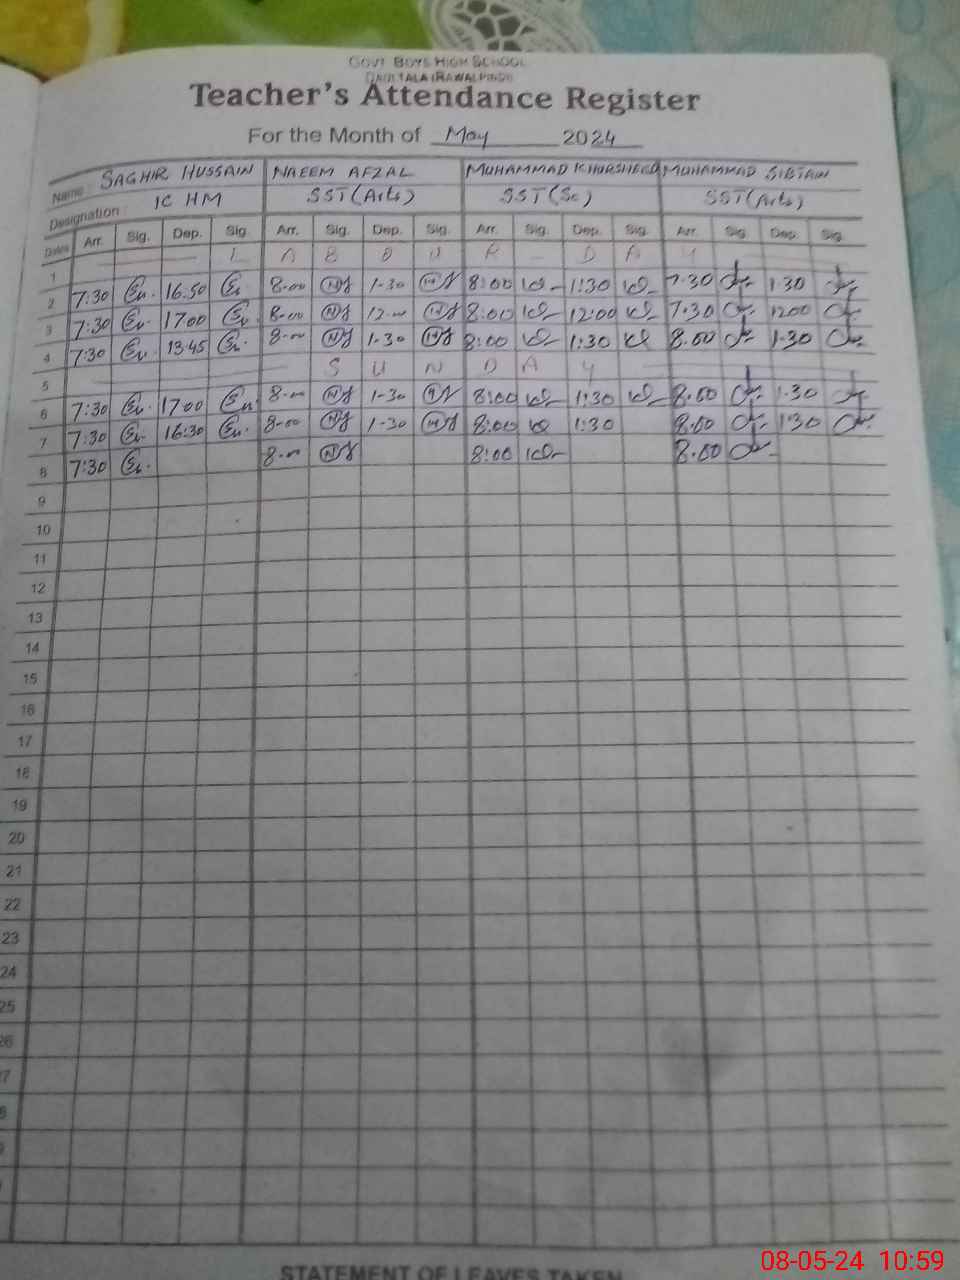 GOVT BOYS HIGH SCHOOL
(RAWALPINDI)
Teacher's Attendance Register
For the Month of May 2024
Name: SAGHIR HUSSAIN NAEEM AFZAL MUHAMMAD KHURSHEED MUHAMMAD SIBTAIN
Designation: IC HM SST (Arts) SST (Sc) SST (Arts)
Dates Arr. Sig. Dep. Sig. Arr. Sig. Dep. Sig. Arr. Sig. Dep. Sig. Arr. Sig. Dep. Sig.
1 L A B O U R - D A Y
2 7:30 16.50 8-00 1-30 8:00 1:30 7.30 1.30
3 7:30 1700 8-00 12-00 8:00 12:00 7.30 1200
4 7:30 13.45 8-00 1-30 8:00 1:30 8.00 1.30
5 S U N D A Y
6 7:30 1700 8-00 1-30 8:00 1:30 8.00 1.30
7 7:30 16:30 8-00 1-30 8:00 1:30 8.00 1.30
8 7:30 8-00 8:00 8.00
9
10
11
12
13
14
15
16
17
18
19
20
21
22
23
24
25
26
STATEMENT OF LEAVES TAKEN
08-05-24 10:59